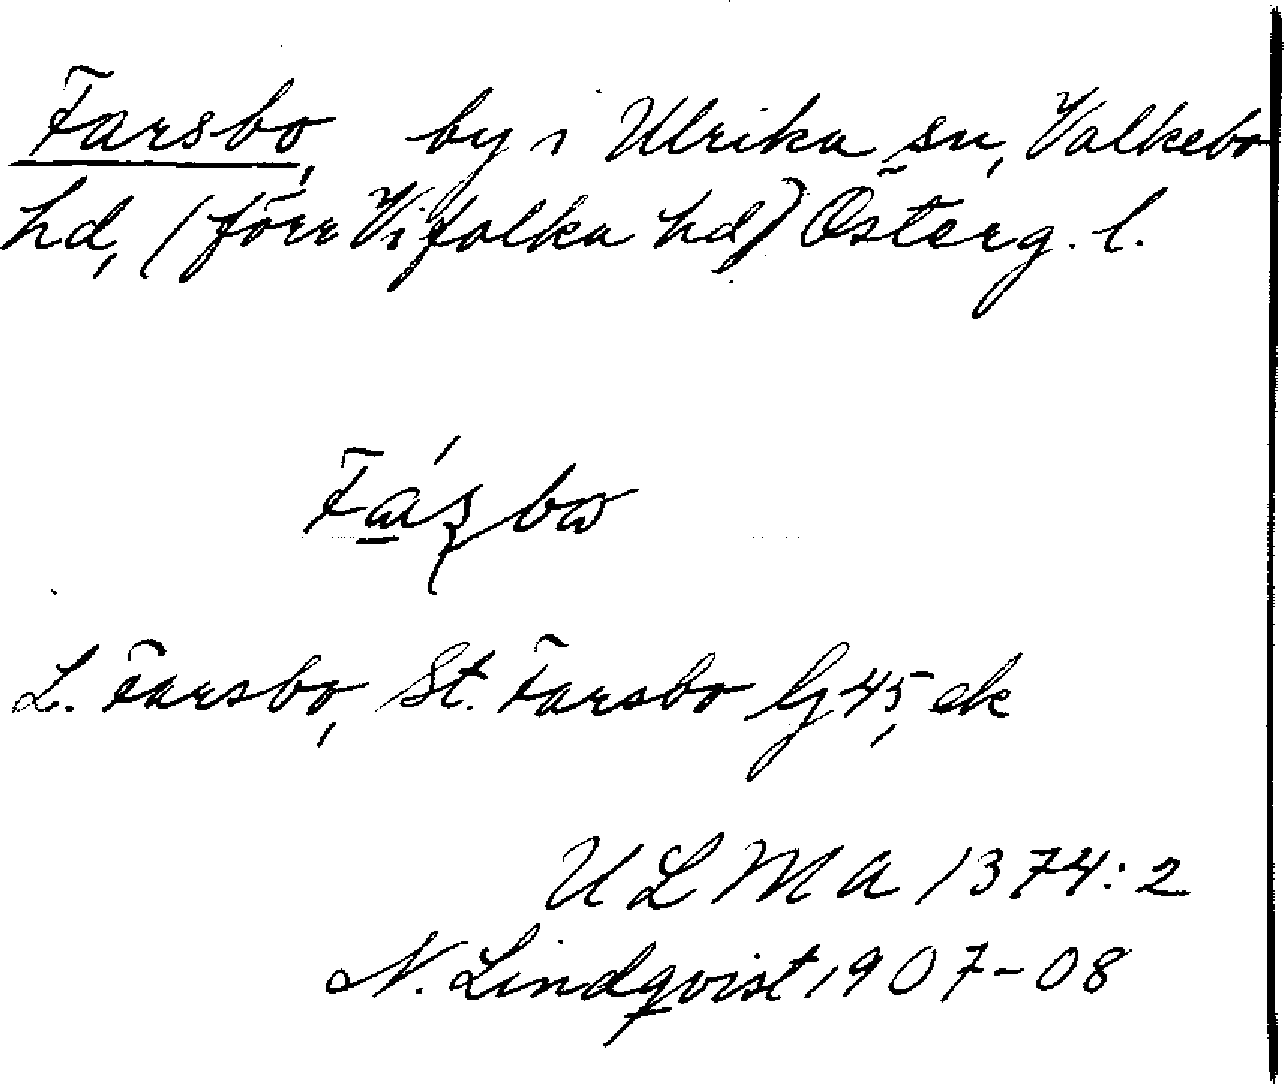 Farsbo, by i Ulrika sn, Valkebo
hd, (förr Vifolka hd) Österg. l.
L. Farsbo, St. Farsbo G 45, ek
ULMA 1374:2
N. Lindqvist 1907-08